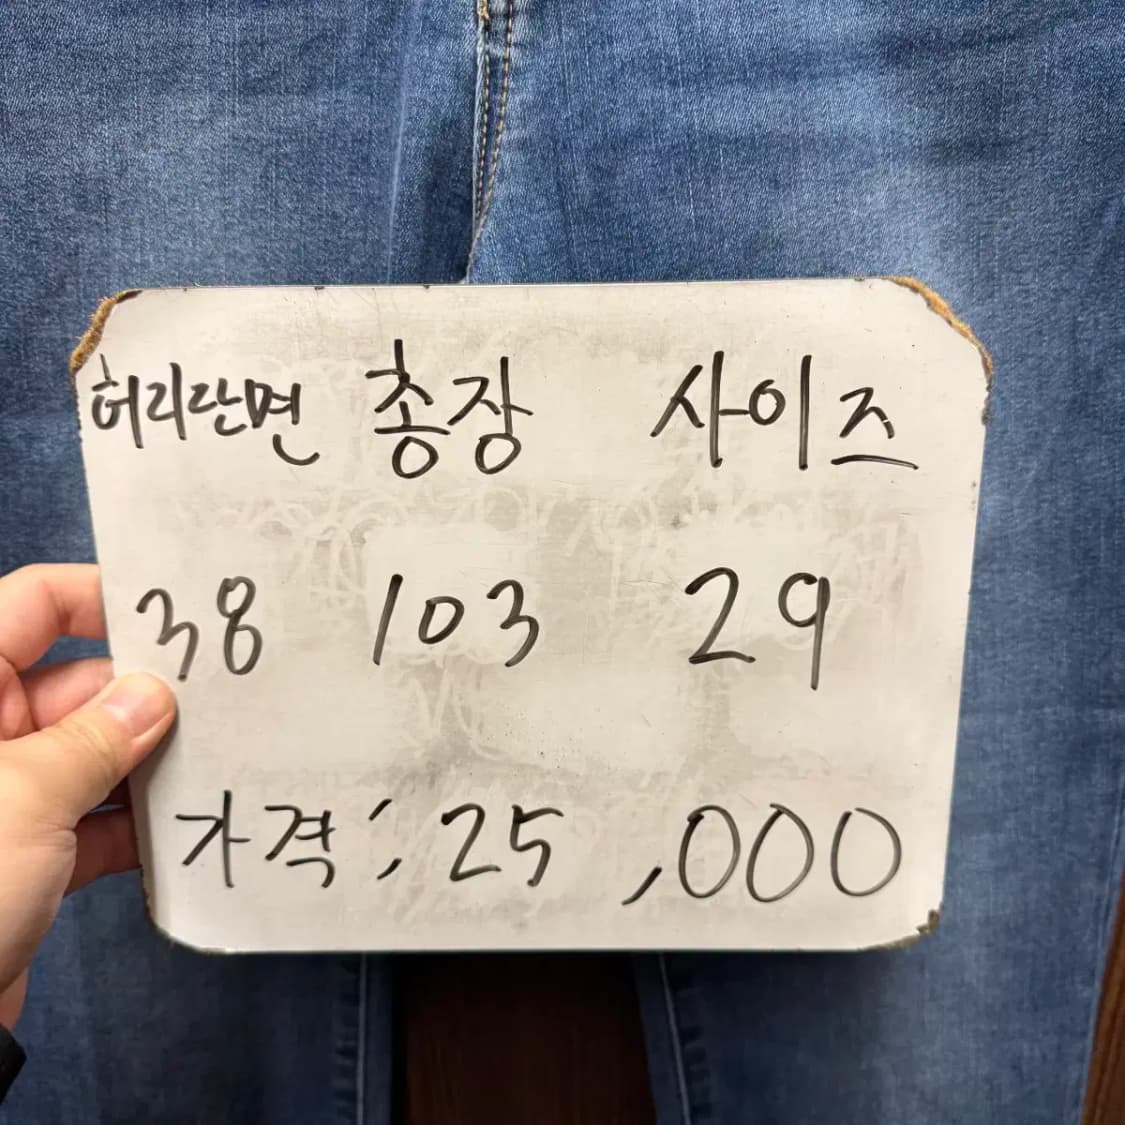 허리단면 총장 사이즈
38 103 29
가격; 25,000